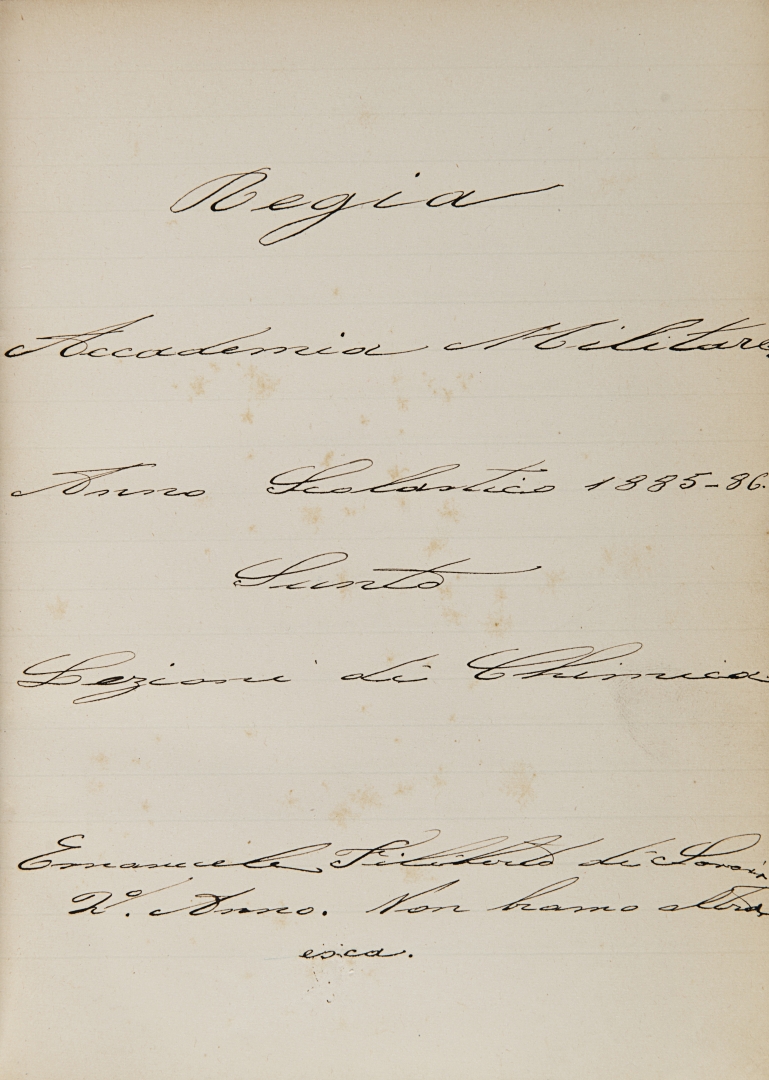 Regia
Accademia Militare
Anno Scolastico 1885-86.
Sunto
Lezioni di Chimica
Emanuele Filiberto di Savoia
2º. Anno. Non bramo altra
esca.